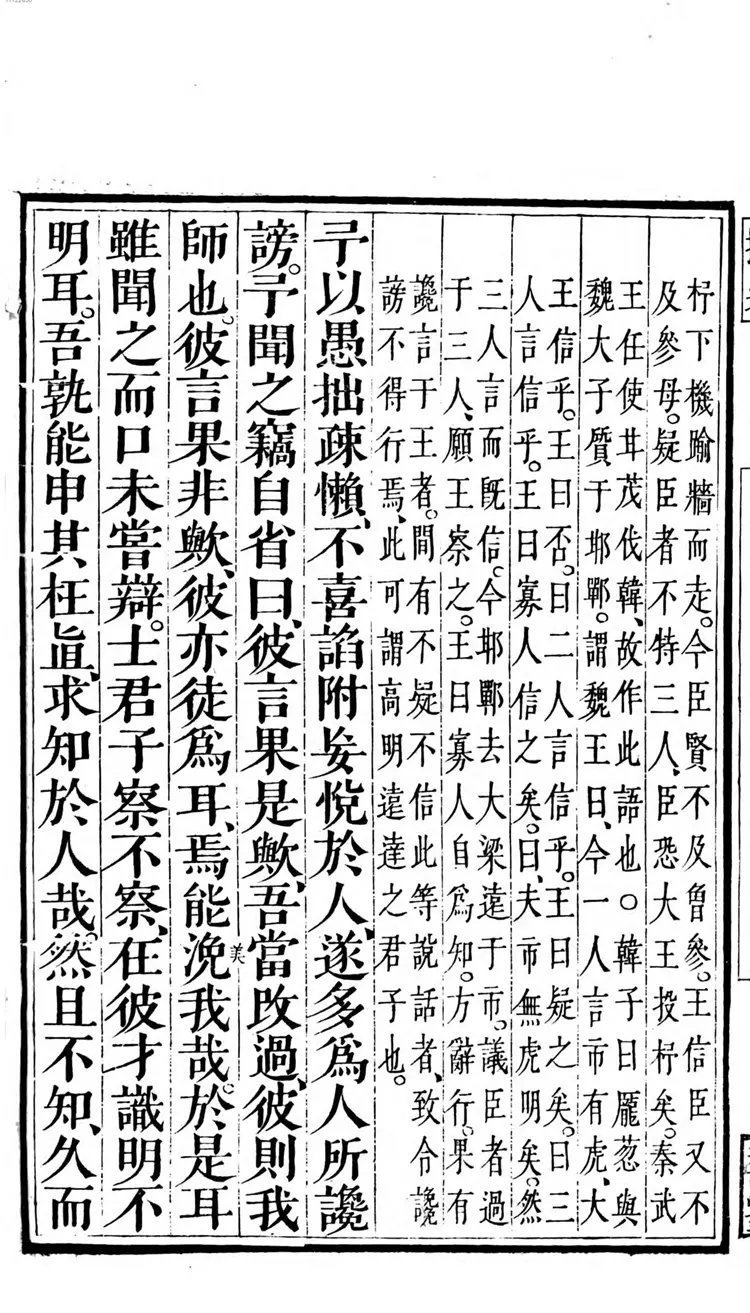 杼下機踰牆而走。今臣賢不及魯參。王信臣又不
及參母。疑臣者不特三人、臣恐大王投杼矣。秦武
王任使甘茂伐韓、故作此語也。○韓子曰龐葱與
魏大子質于邯鄲。謂魏王曰、今一人言市有虎、大
王信乎。王曰否。曰二人言信乎。王曰疑之矣。曰三
人言信乎。王曰寡人信之矣。曰、夫市無虎明矣。然
三人言而既信。今邯鄲去大梁遠于市。議臣者過
于三人、願王察之。王曰寡人自爲知。方辭行。果有
讒言于王者。間有不疑不信此等說話者、致令讒
謗不得行焉、此可謂高明遠達之君子也。
予以愚拙疎懶、不喜諂附妄悅於人、遂多爲人所讒
謗。予聞之竊自省曰、彼言果是歟、吾當改過、彼則我
師也。彼言果非歟、彼亦徒爲耳、焉能浼我哉。於是耳
美
雖聞之而口未嘗辯。士君子察不察、在彼才識明不
明耳。吾孰能申其枉直、求知於人哉。然且不知、久而